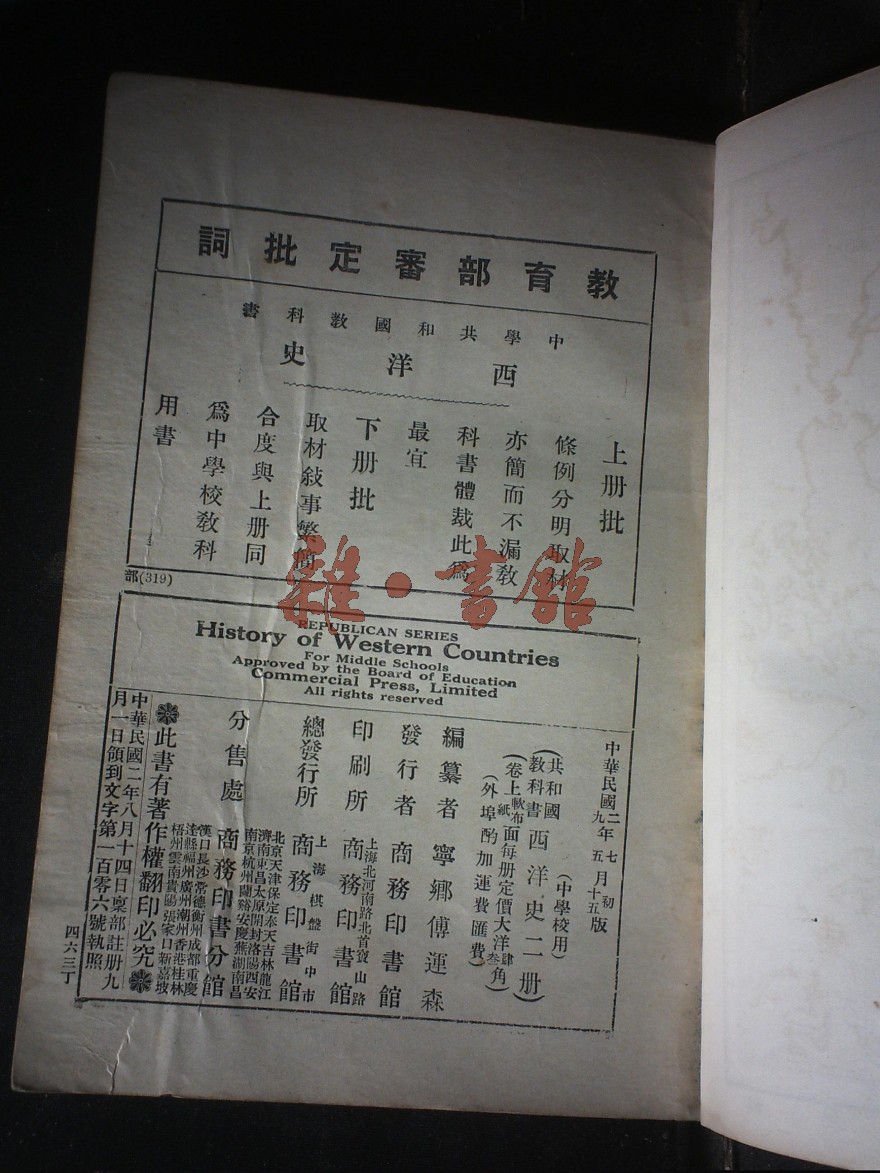 教育部審定批詞
中學共和國教科書
西洋史
上册批
條例分明取材
亦簡而不漏教
科書體裁此爲
最宜
下册批
取材敍事繁簡
合度與上册同
爲中學校教科
用書
部(319)
雜·書館
REPUBLICAN SERIES
History of Western Countries
For Middle Schools
Approved by the Board of Education
Commercial Press, Limited
All rights reserved
中華民國二年七月初版
九年五月十五版
(中學校用)
(共和國教科書西洋史二册)
(卷上軟布紙面每册定價大洋肆叁角)
(外埠酌加運費匯費)
編纂者 寧鄉傅運森
發行者 商務印書館
印刷所 上海北河南路北首寶山路 商務印書館
總發行所 上海棋盤街中市 商務印書館
分售處 北京天津保定奉天吉林龍江
濟南東昌太原開封洛陽西安
南京杭州蘭谿安慶蕪湖南昌
商務印書分館
漢口長沙常德衡州成都重慶
達縣福州廣州潮州香港桂林
梧州雲南貴陽張家口新嘉坡
此書有著作權翻印必究
中華民國二年八月十四日稟部註册九
月一日領到文字第一百零六號執照
四六三丁